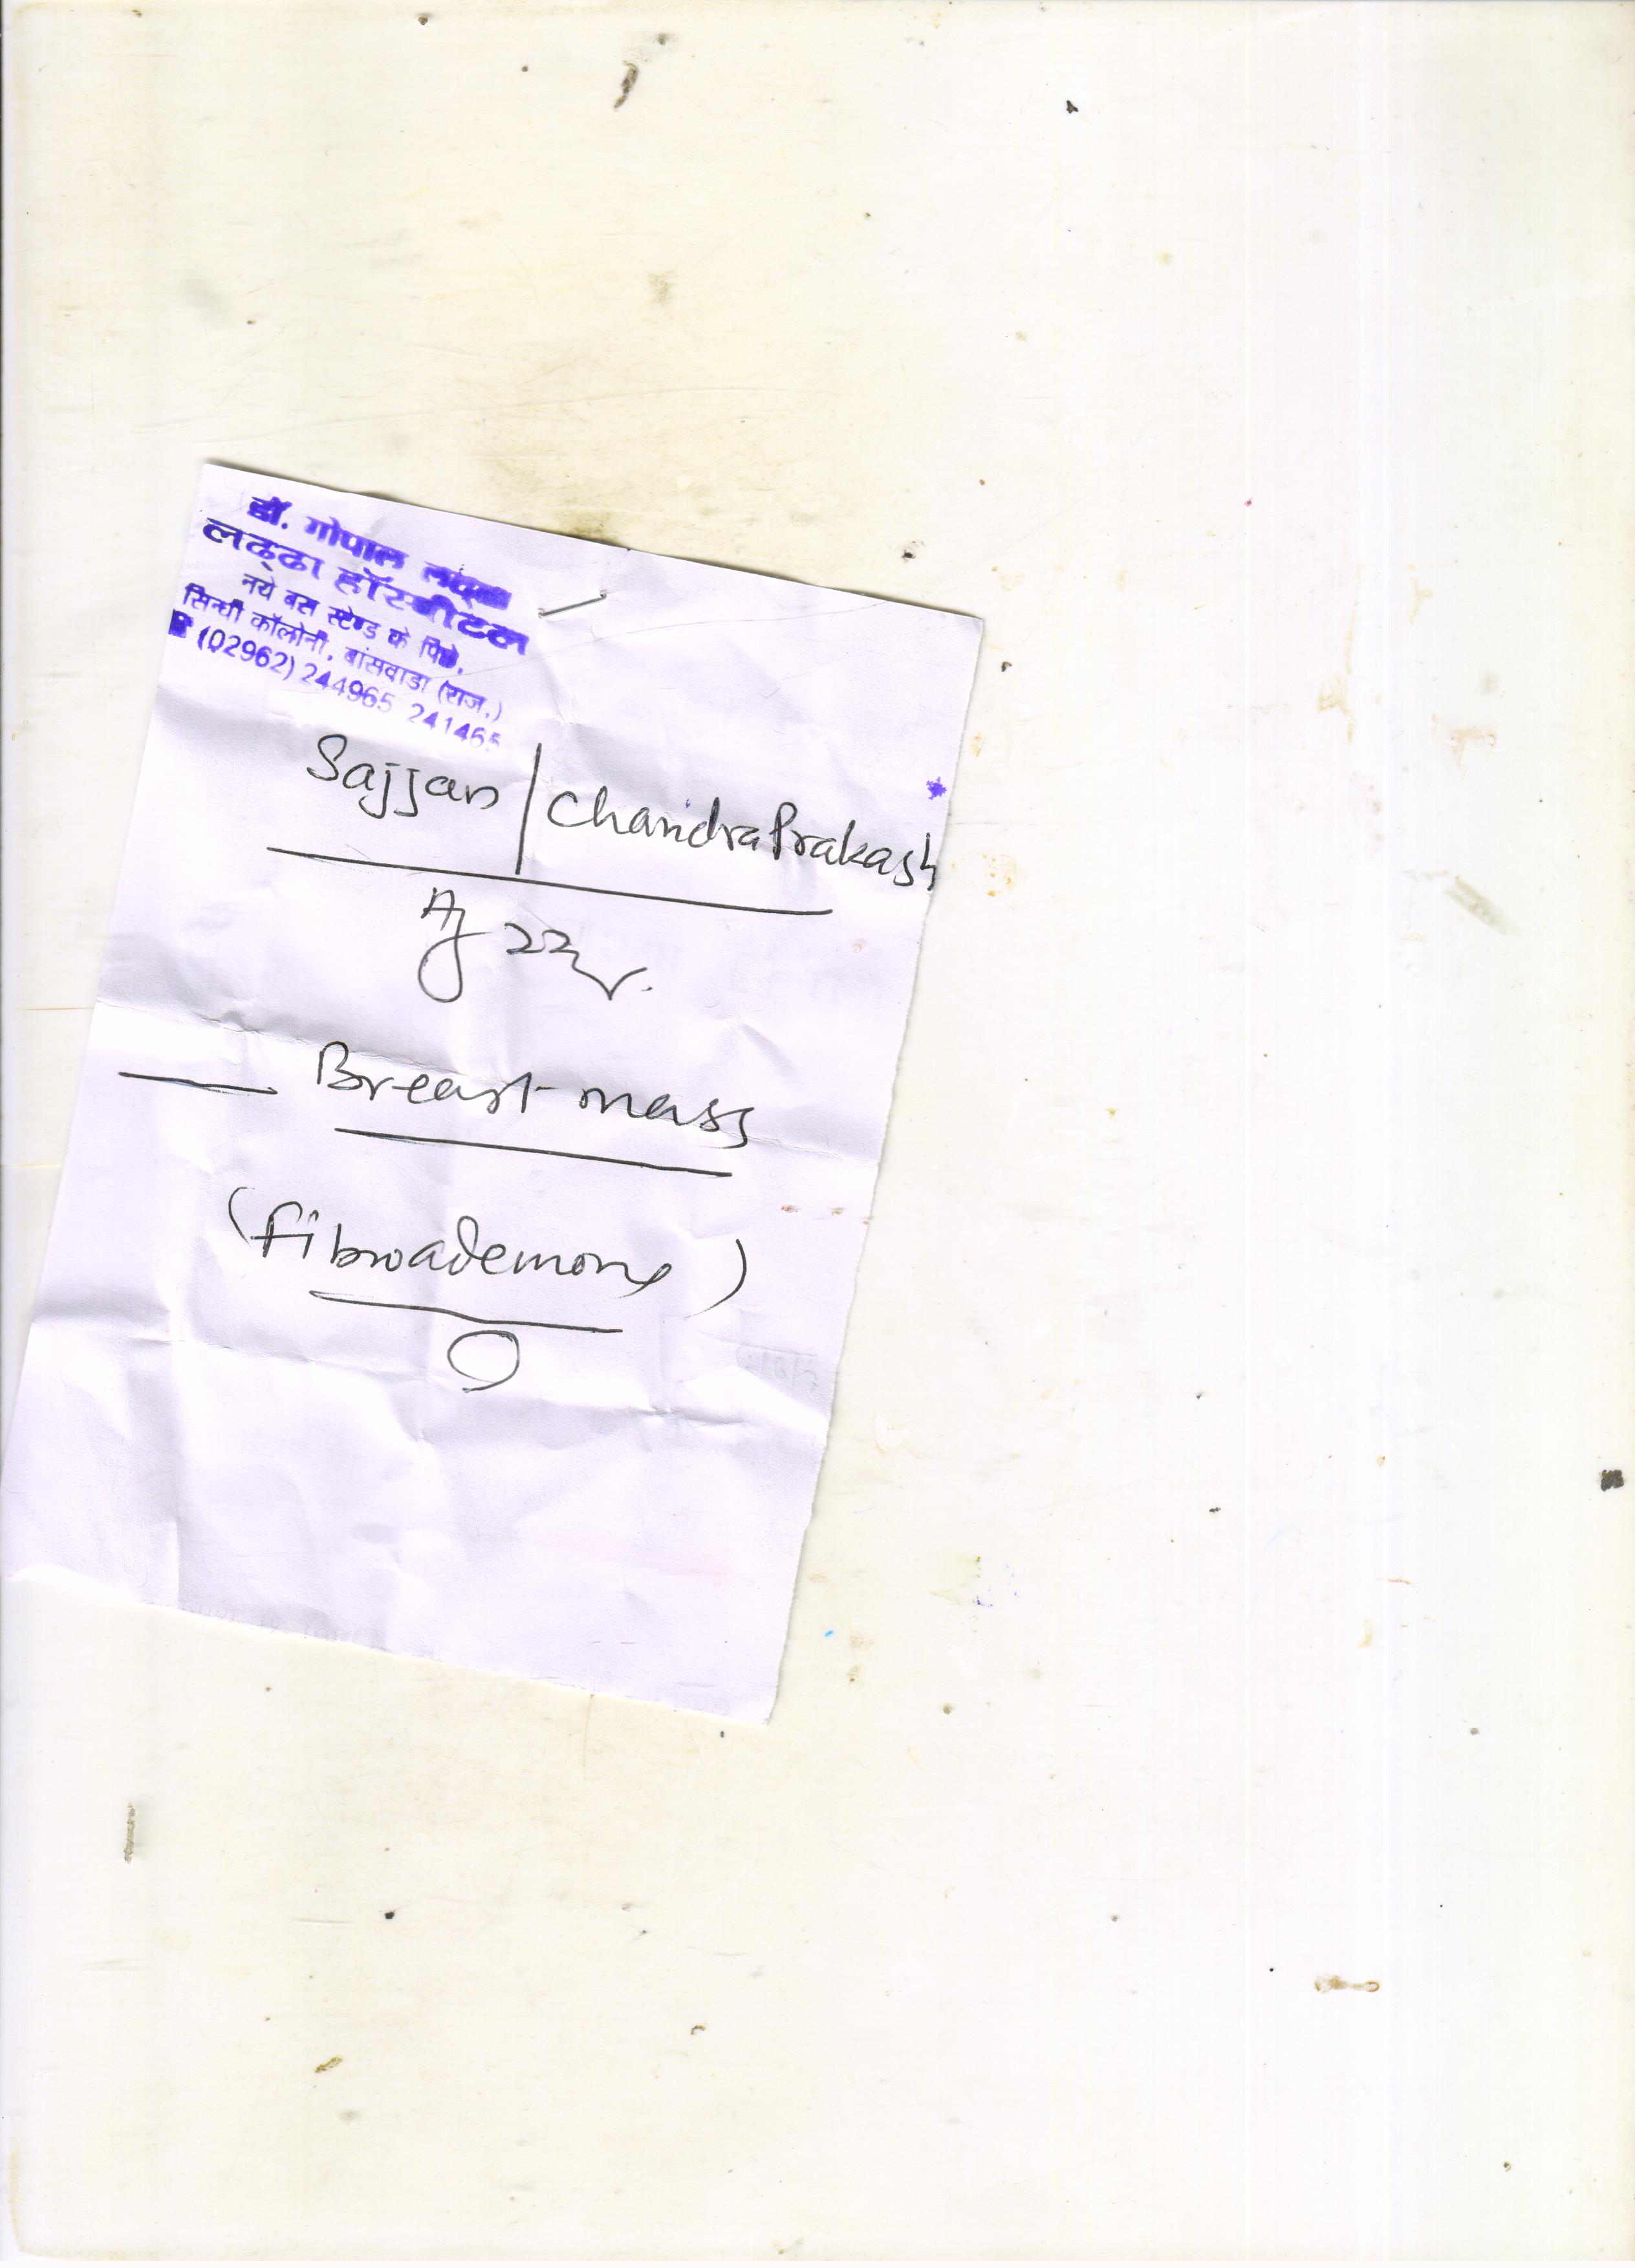 डॉ. गोपाल
लढ्ढा हॉस्पीटल
नये बस स्टेण्ड के पिछे,
सिन्धी कॉलोनी, बांसवाडा (राज.)
(02962) 244965 241465
Sajjan / Chandra Prakash
Ag 22
Breast mass
(Fibroadenoma)